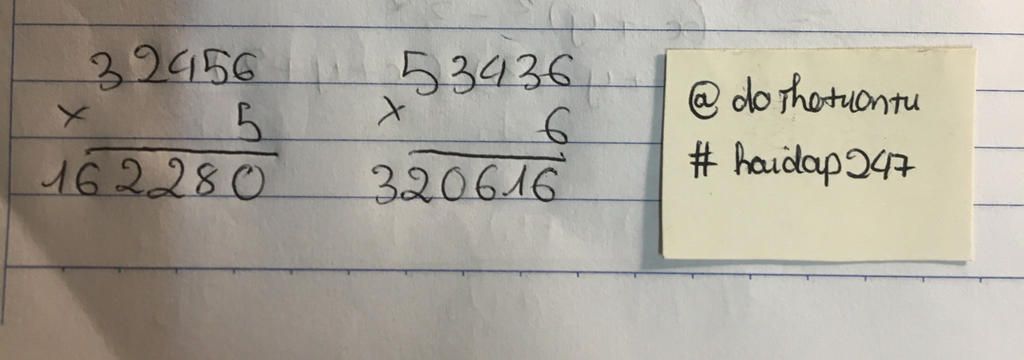 32456
× 5
162280
53436
× 6
320616
@ dothatuantu
# haidap247